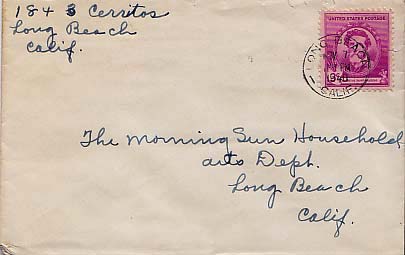 1843 Cerritos
Long Beach
Calif.
UNITED STATES POSTAGE
LONG BEACH
1940
CALIF.
The Morning Sun Household
arts Dept.
Long Beach
Calif.